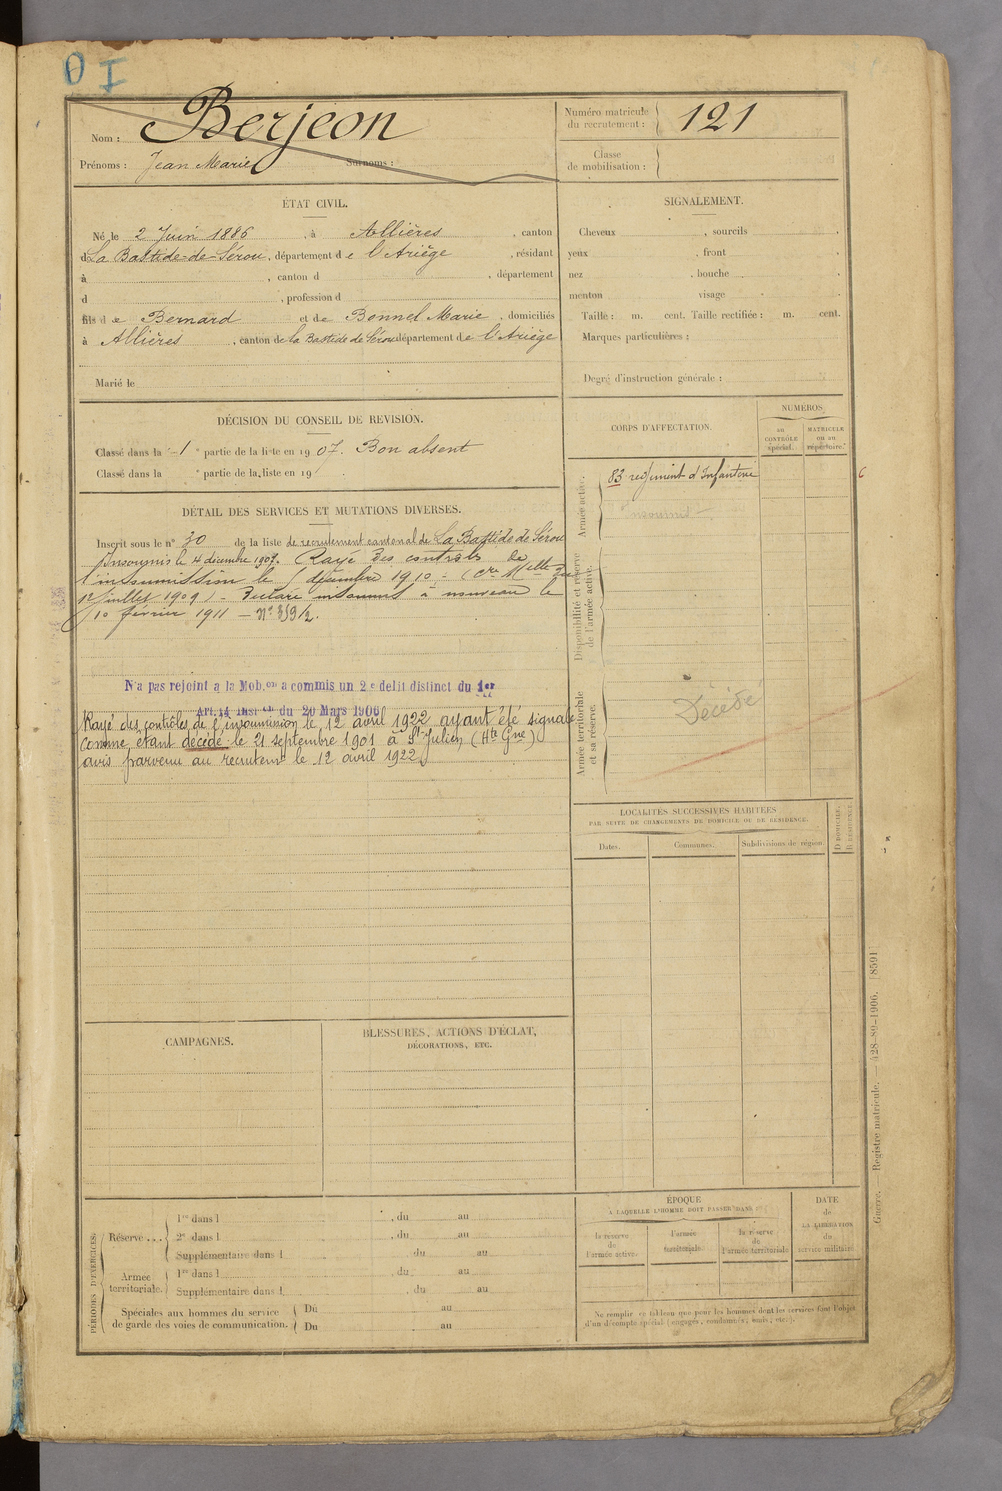 O I
Nom : Berjeon
Prénoms : Jean Marie Surnoms :
Numéro matricule du recrutement : 121
Classe de mobilisation :
ÉTAT CIVIL.
Né le 2 Juin 1886, à Allières, canton
d La Bastide-de-Sérou, département de l'Ariège, résidant
à , canton d , département
d , profession d
fils de Bernard et de Bonnel Marie, domiciliés
à Allières, canton de la Bastide de Sérou département de l'Ariège
Marié le
SIGNALEMENT.
Cheveux , sourcils
yeux , front
nez , bouche
menton visage
Taille : m. cent. Taille rectifiée : m. cent.
Marques particulières :
Degré d'instruction générale :
DÉCISION DU CONSEIL DE REVISION.
Classé dans la 1e partie de la liste en 1907. Bon absent
Classé dans la e partie de la liste en 19
DÉTAIL DES SERVICES ET MUTATIONS DIVERSES.
Inscrit sous le n° 30 de la liste de recrutement cantonal de La Bastide de Sérou
Insoumis le 4 décembre 1907. Rayé des contrôles de
l'insoumission le décembre 1910
juillet 1909) - Déclaré insoumis à nouveau le
10 février 1911 — N° 359/2.
N'a pas rejoint a la Mob.on a commis un 2e delit distinct du 1er
Art. 14 Inst on du 20 Mars 1906
Rayé des contrôles de l'insoumission le 12 avril 1922 ayant été signalé
comme étant décédé le 21 septembre 1901 à St Julien (Hte Gne)
avis parvenu au recrutemt le 12 avril 1922
CORPS D'AFFECTATION.
NUMÉROS
au CONTRÔLE spécial.
MATRICULE ou au répertoire.
Armée active.
83 régiment d'Infanterie
Insoumis
Disponibilité et réserve de l'armée active.
Armée territoriale et sa réserve.
Décédé
LOCALITÉS SUCCESSIVES HABITÉES
PAR SUITE DE CHANGEMENTS DE DOMICILE OU DE RÉSIDENCE.
Dates. Communes. Subdivisions de région. D DOMICILE. R RÉSIDENCE.
CAMPAGNES.
BLESSURES, ACTIONS D'ÉCLAT,
DÉCORATIONS, ETC.
PÉRIODES D'EXERCICES.
Réserve...
1re dans l , du au
2e dans l , du au
Supplémentaire dans l , du au
Armée territoriale.
1re dans l , du au
Supplémentaire dans l , du au
Spéciales aux hommes du service de garde des voies de communication.
Du au
Du au
ÉPOQUE
À LAQUELLE L'HOMME DOIT PASSER DANS
la réserve de l'armée active.
l'armée territoriale.
la réserve de l'armée territoriale
DATE de LA LIBÉRATION du service militaire.
Ne remplir ce tableau que pour les hommes dont les services font l'objet
d'un décompte spécial (engagés, condamnés, omis, etc.).
Guerre. — Registre matricule. — 428-89-1906. [8591]